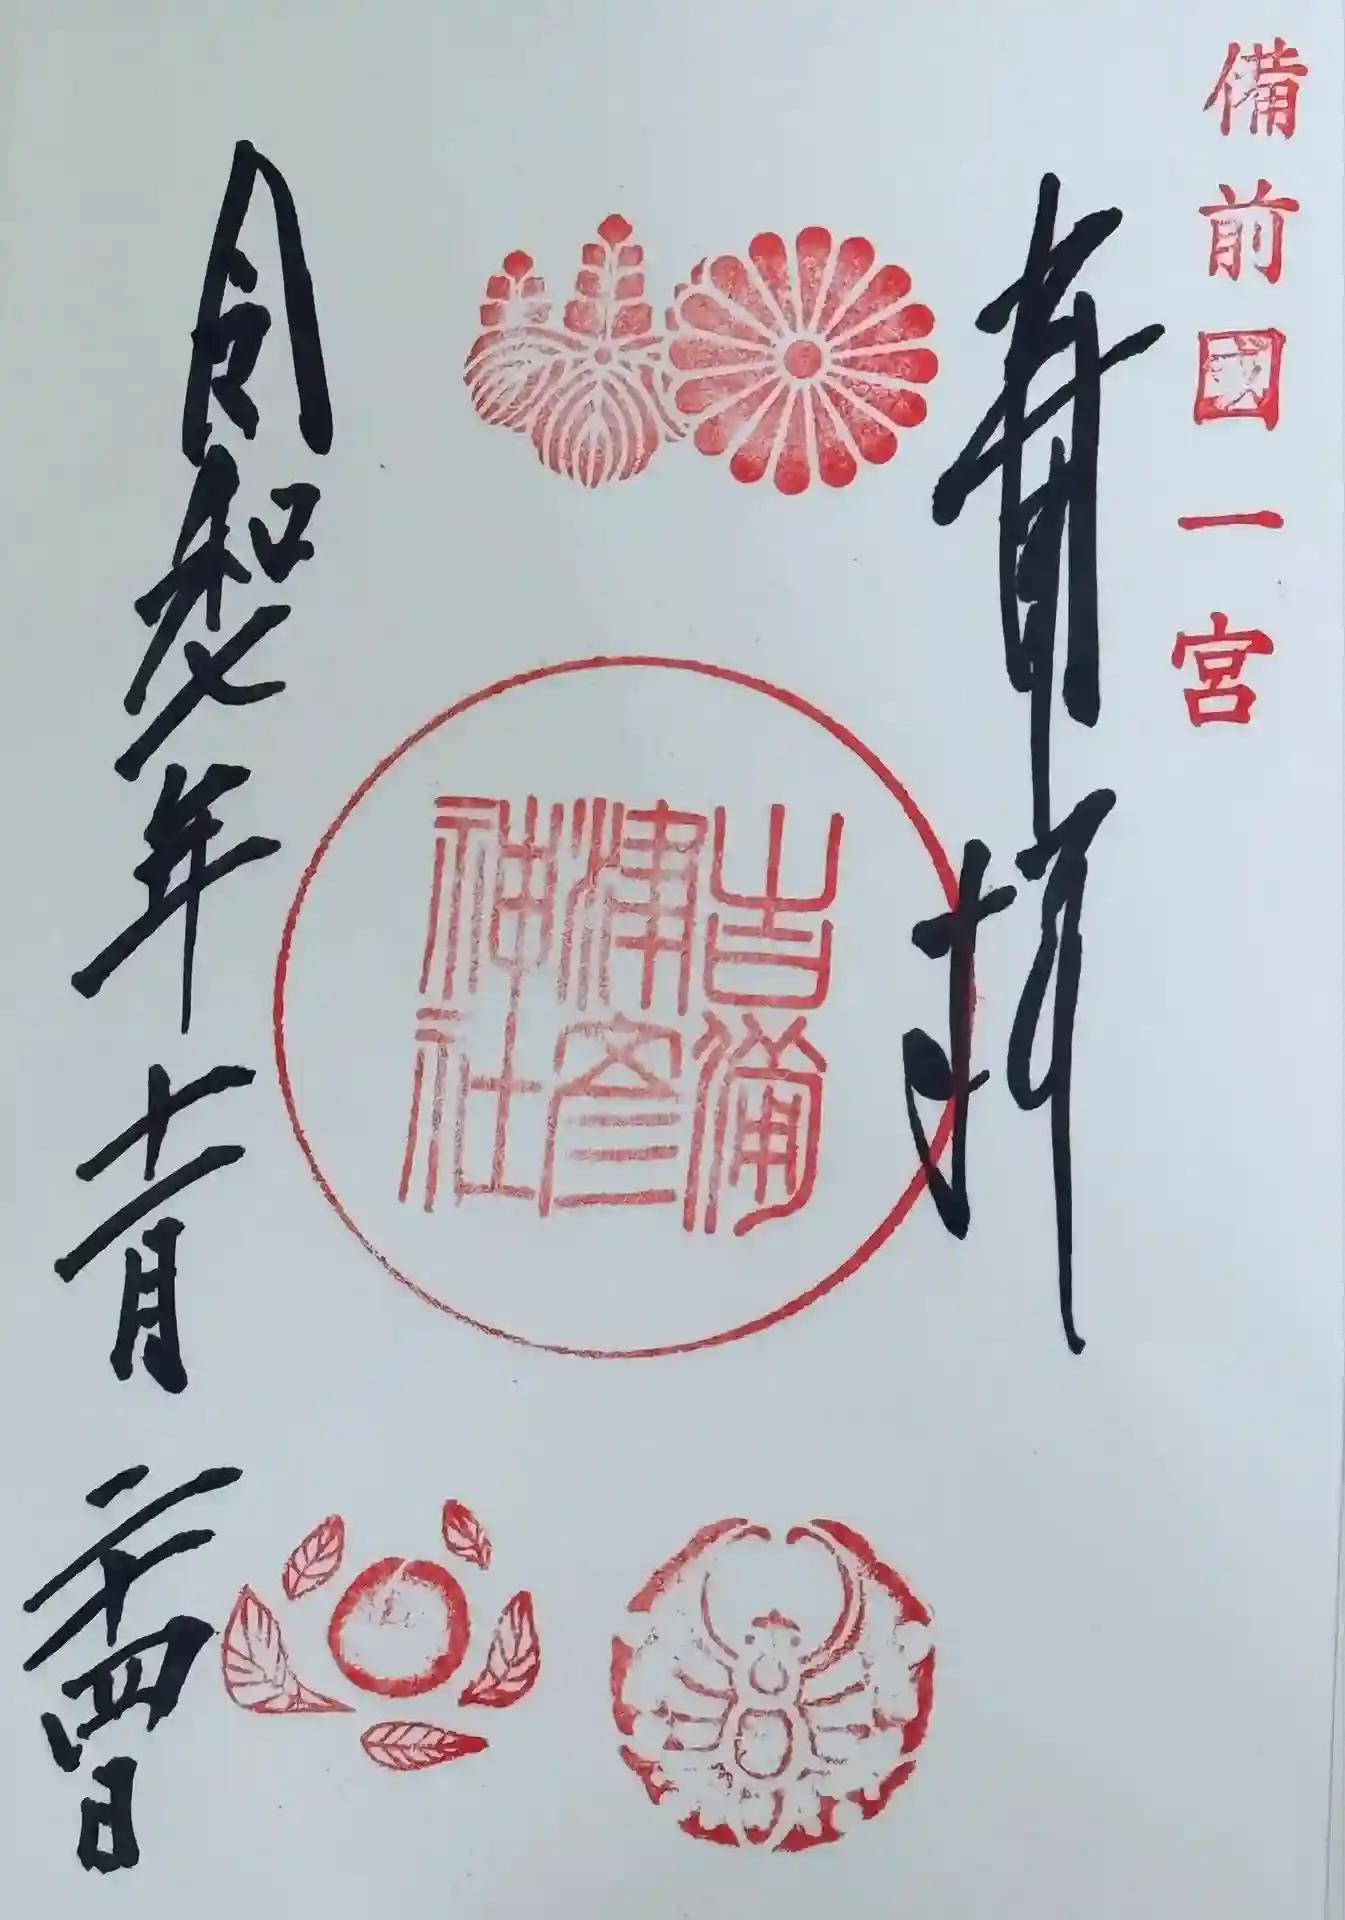 備前國一宮
奉拝
吉備津彦神社
令和七年十一月二十四日